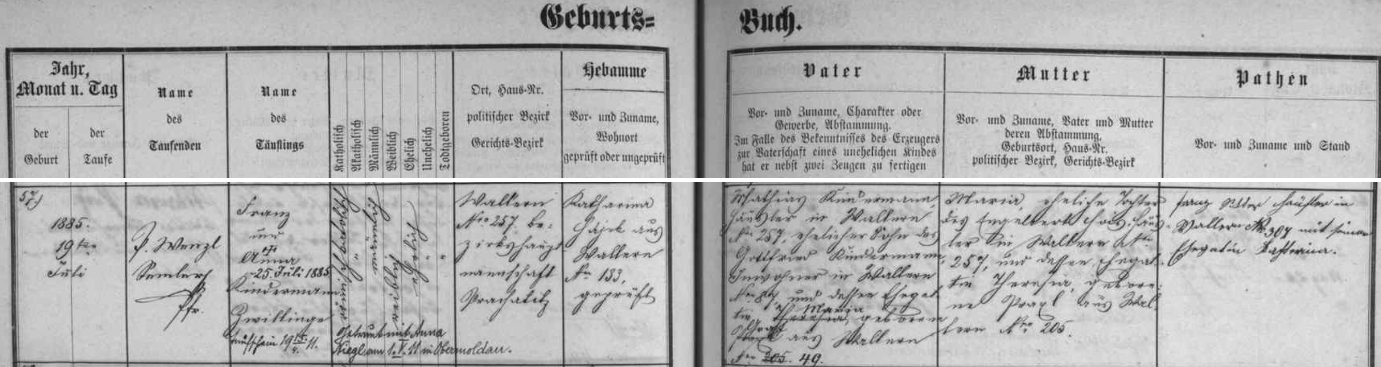 Geburts= Buch.
Jahr,
Monat u. Tag
der
Geburt
der
Taufe
Name
des
Taufenden
Name
des
Täuflings
Katholisch
Akatholisch
Männlich
Weiblich
Ehelich
Unehelich
Todtgeboren
Ort, Haus-Nr.
politischer Bezirk
Gerichts-Bezirk
Hebamme
Vor- und Zuname,
Wohnort
geprüft oder ungeprüft
Vater
Vor- und Zuname, Charakter oder
Gewerbe, Abstammung.
Im Falle des Bekenntnisses des Erzeugers
zur Vaterschaft eines unehelichen Kindes
hat er nebst zwei Zeugen zu fertigen
Mutter
Vor- und Zuname, Vater und Mutter
deren Abstammung,
Geburtsort, Haus-Nr.
politischer Bezirk, Gerichts-Bezirk
Pathen
Vor- und Zuname und Stand
57)
1885.
19te
Juli
P. Wenzl
Pfr.
Franz
und
Anna
† 25. Juli 1885
Kindermann
Zwillinge
männlich
weiblich
Ehelich
Getraut mit Anna
am 1. V. 11 in Obermoldau.
Wallern
Nro 257. be-
zirkshaupt
mannschaft
Prachatitz
Katharina
aus
Wallern
No 183,
geprüft
Mathias Kindermann,
Häusler in Wallern
No 257, ehelicher Sohn des
Gottfried Kindermann,
Inwohner in Wallern
und dessen Ehegat-
tin Maria, geborene
aus Wallern
No 49.
Maria, eheliche Tochter
des Engelbert Häus-
ler in Wallern Nro
257, und dessen Ehegat-
tin Theresia, gebore-
ne Prapl aus Wal-
lern Nro 205.
Häusler in
Wallern No. 307 mit seiner
Ehegatin Katharina.